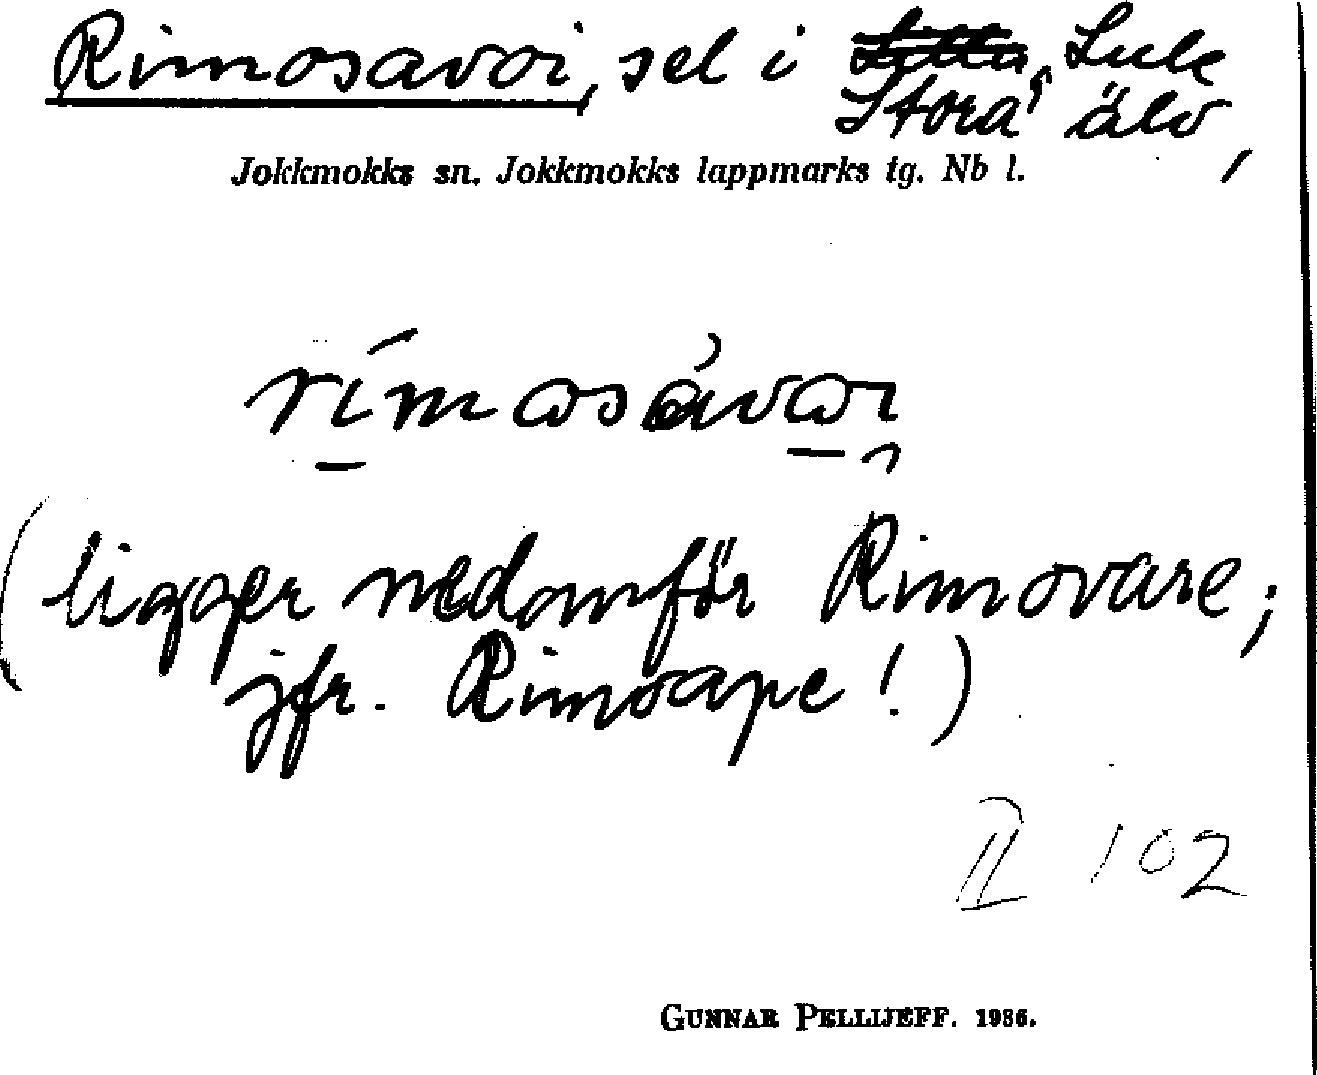 Rimosavoi, sel i Lilla Lule
Stora älv,
Jokkmokks sn. Jokkmokks lappmarks tg. Nb l.
rímosávoi
(ligger nedomför Rimovare;
jfr. Rimoape!)
II 102
GUNNAR PELLIJEFF. 1986.